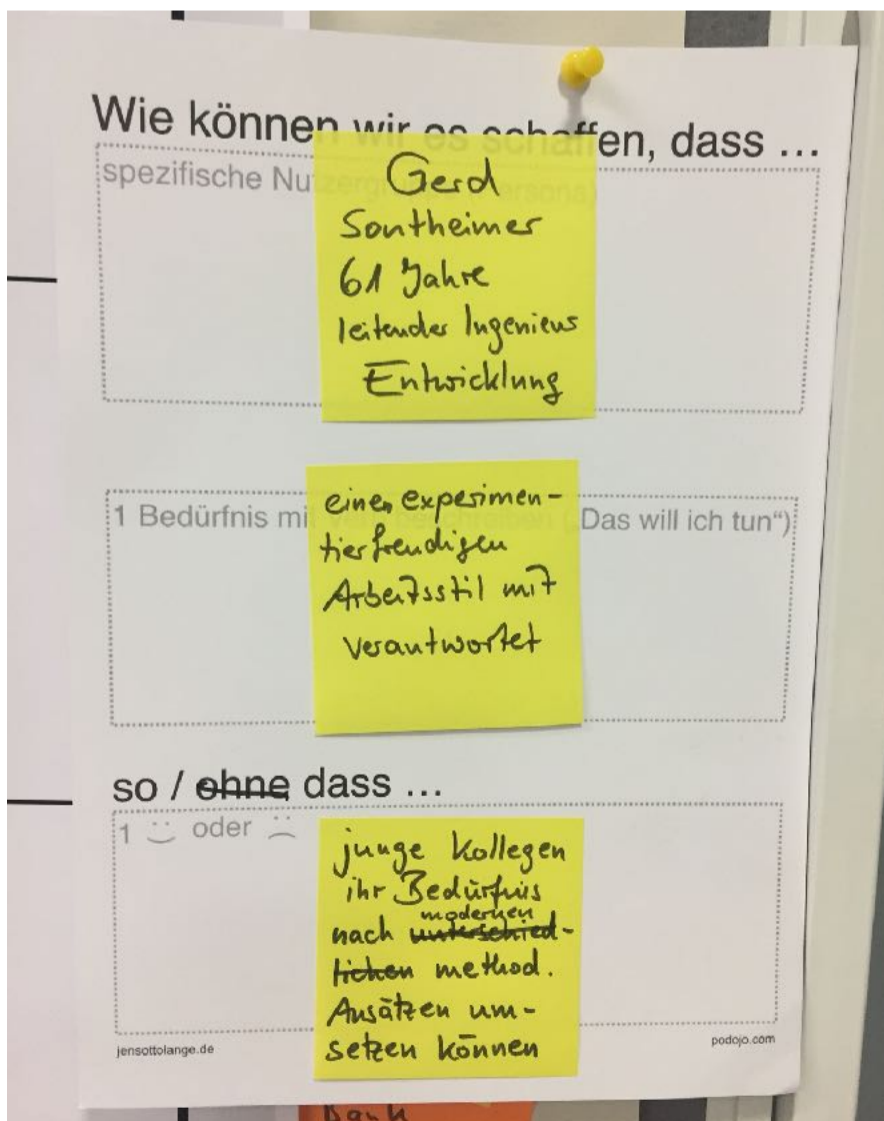 Wie können wir es schaffen, dass ...
spezifische Nutzergruppe (Persona)
Gerd
Sontheimer
61 Jahre
leitender Ingenieur
Entwicklung
1 Bedürfnis mit Verb beschreiben („Das will ich tun“)
einen experimen-
tierfreudigen
Arbeitsstil mit
verantwortet
so / ohne dass ...
1 oder
junge Kollegen
ihr Bedürfnis
modernen
nach unterschied-
lichen method.
Ansätzen um-
setzen können
jensottolange.de
podojo.com
Dank